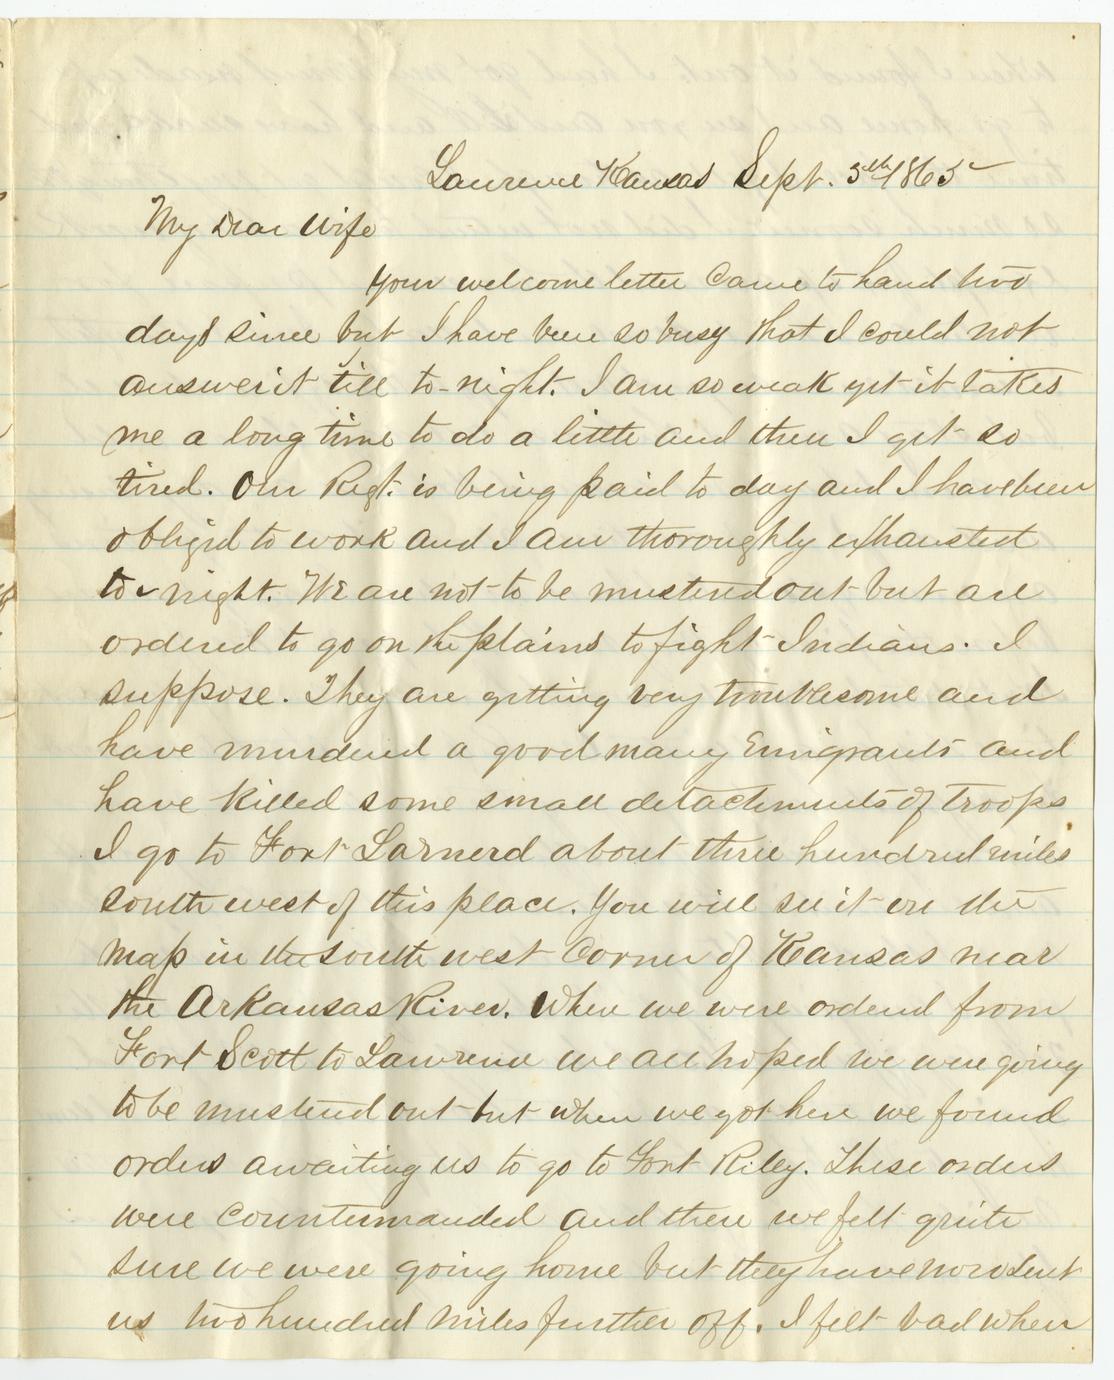 Lawrence Kansas Sept. 5th/1865
My Dear Wife
Your welcome letter came to hand two
days since but I have been so busy that I could not
answer it till to-night. I am so weak yet it takes
me a long time to do a little and then I get so
tired. Our Regt. is being paid to day and I have been
obliged to work and I am thoroughly exhausted
to-night. We are not to be mustered out but are
ordered to go on the plains to fight Indians. I
suppose. They are getting very troublesome and
have murdered a good many Emigrants and
have killed some small detachments of troops
I go to Fort Larnerd about three hundred miles
south west of this place. You will see it on the
map in the south west corner of Kansas near
the Arkansas River. When we were ordered from
Fort Scott to Lawrence we all hoped we were going
to be mustered out but when we got here we found
orders awaiting us to go to Fort Riley. These orders
were countermanded and there we felt quite
sure we were going home but they have now sent
us two hundred miles further off. I felt bad when